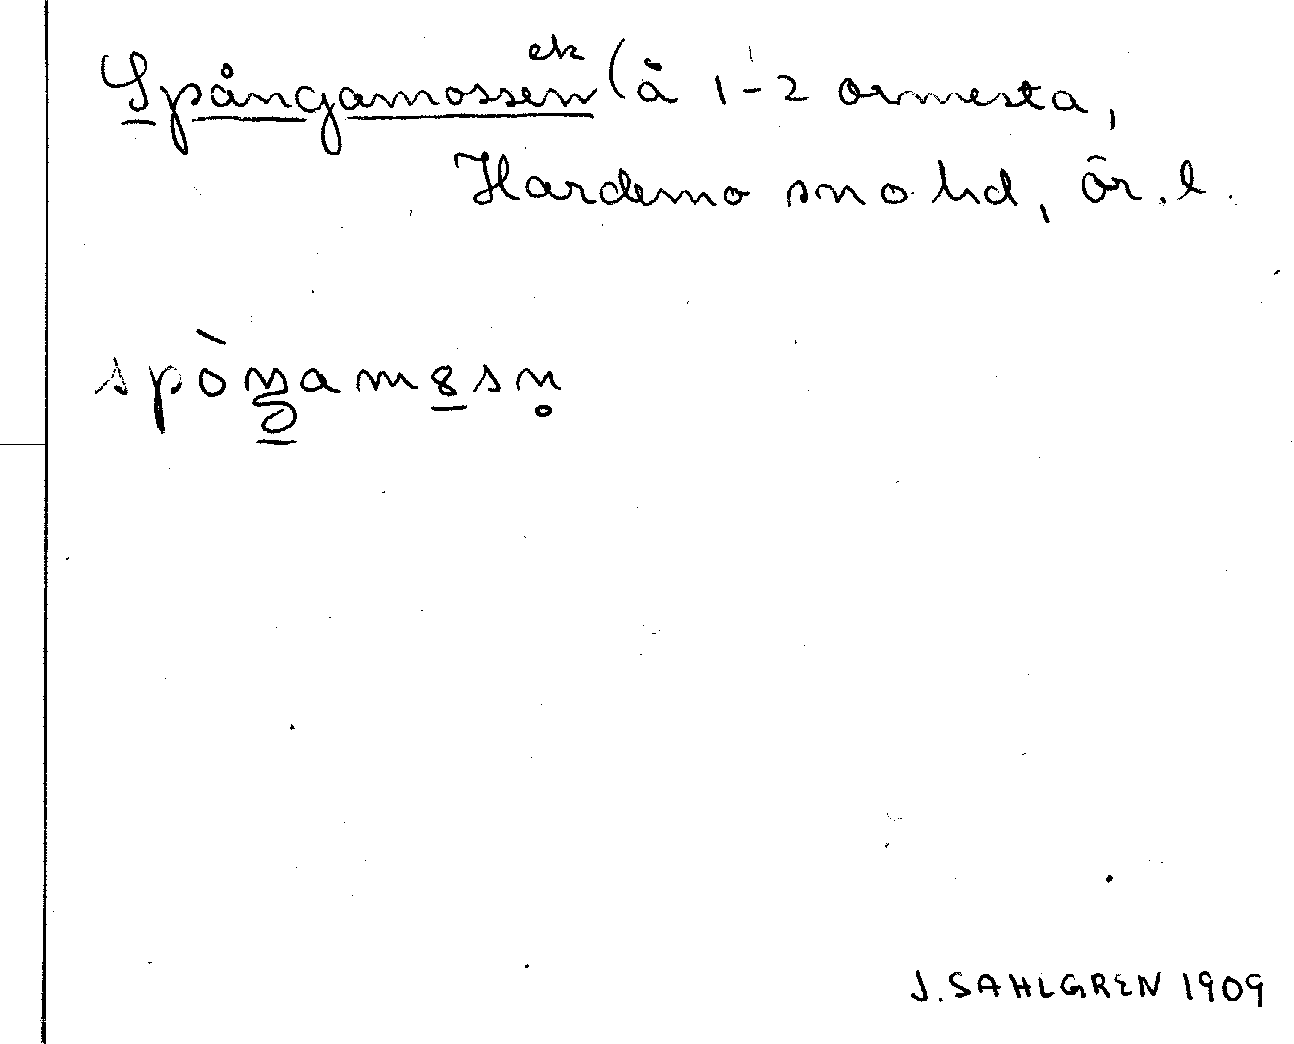 Spångamossen ek (å 1-2 ormesta,
Hardemo sn o hd, ör. l.
spòŋams̩n̥
J. SAHLGREN 1909